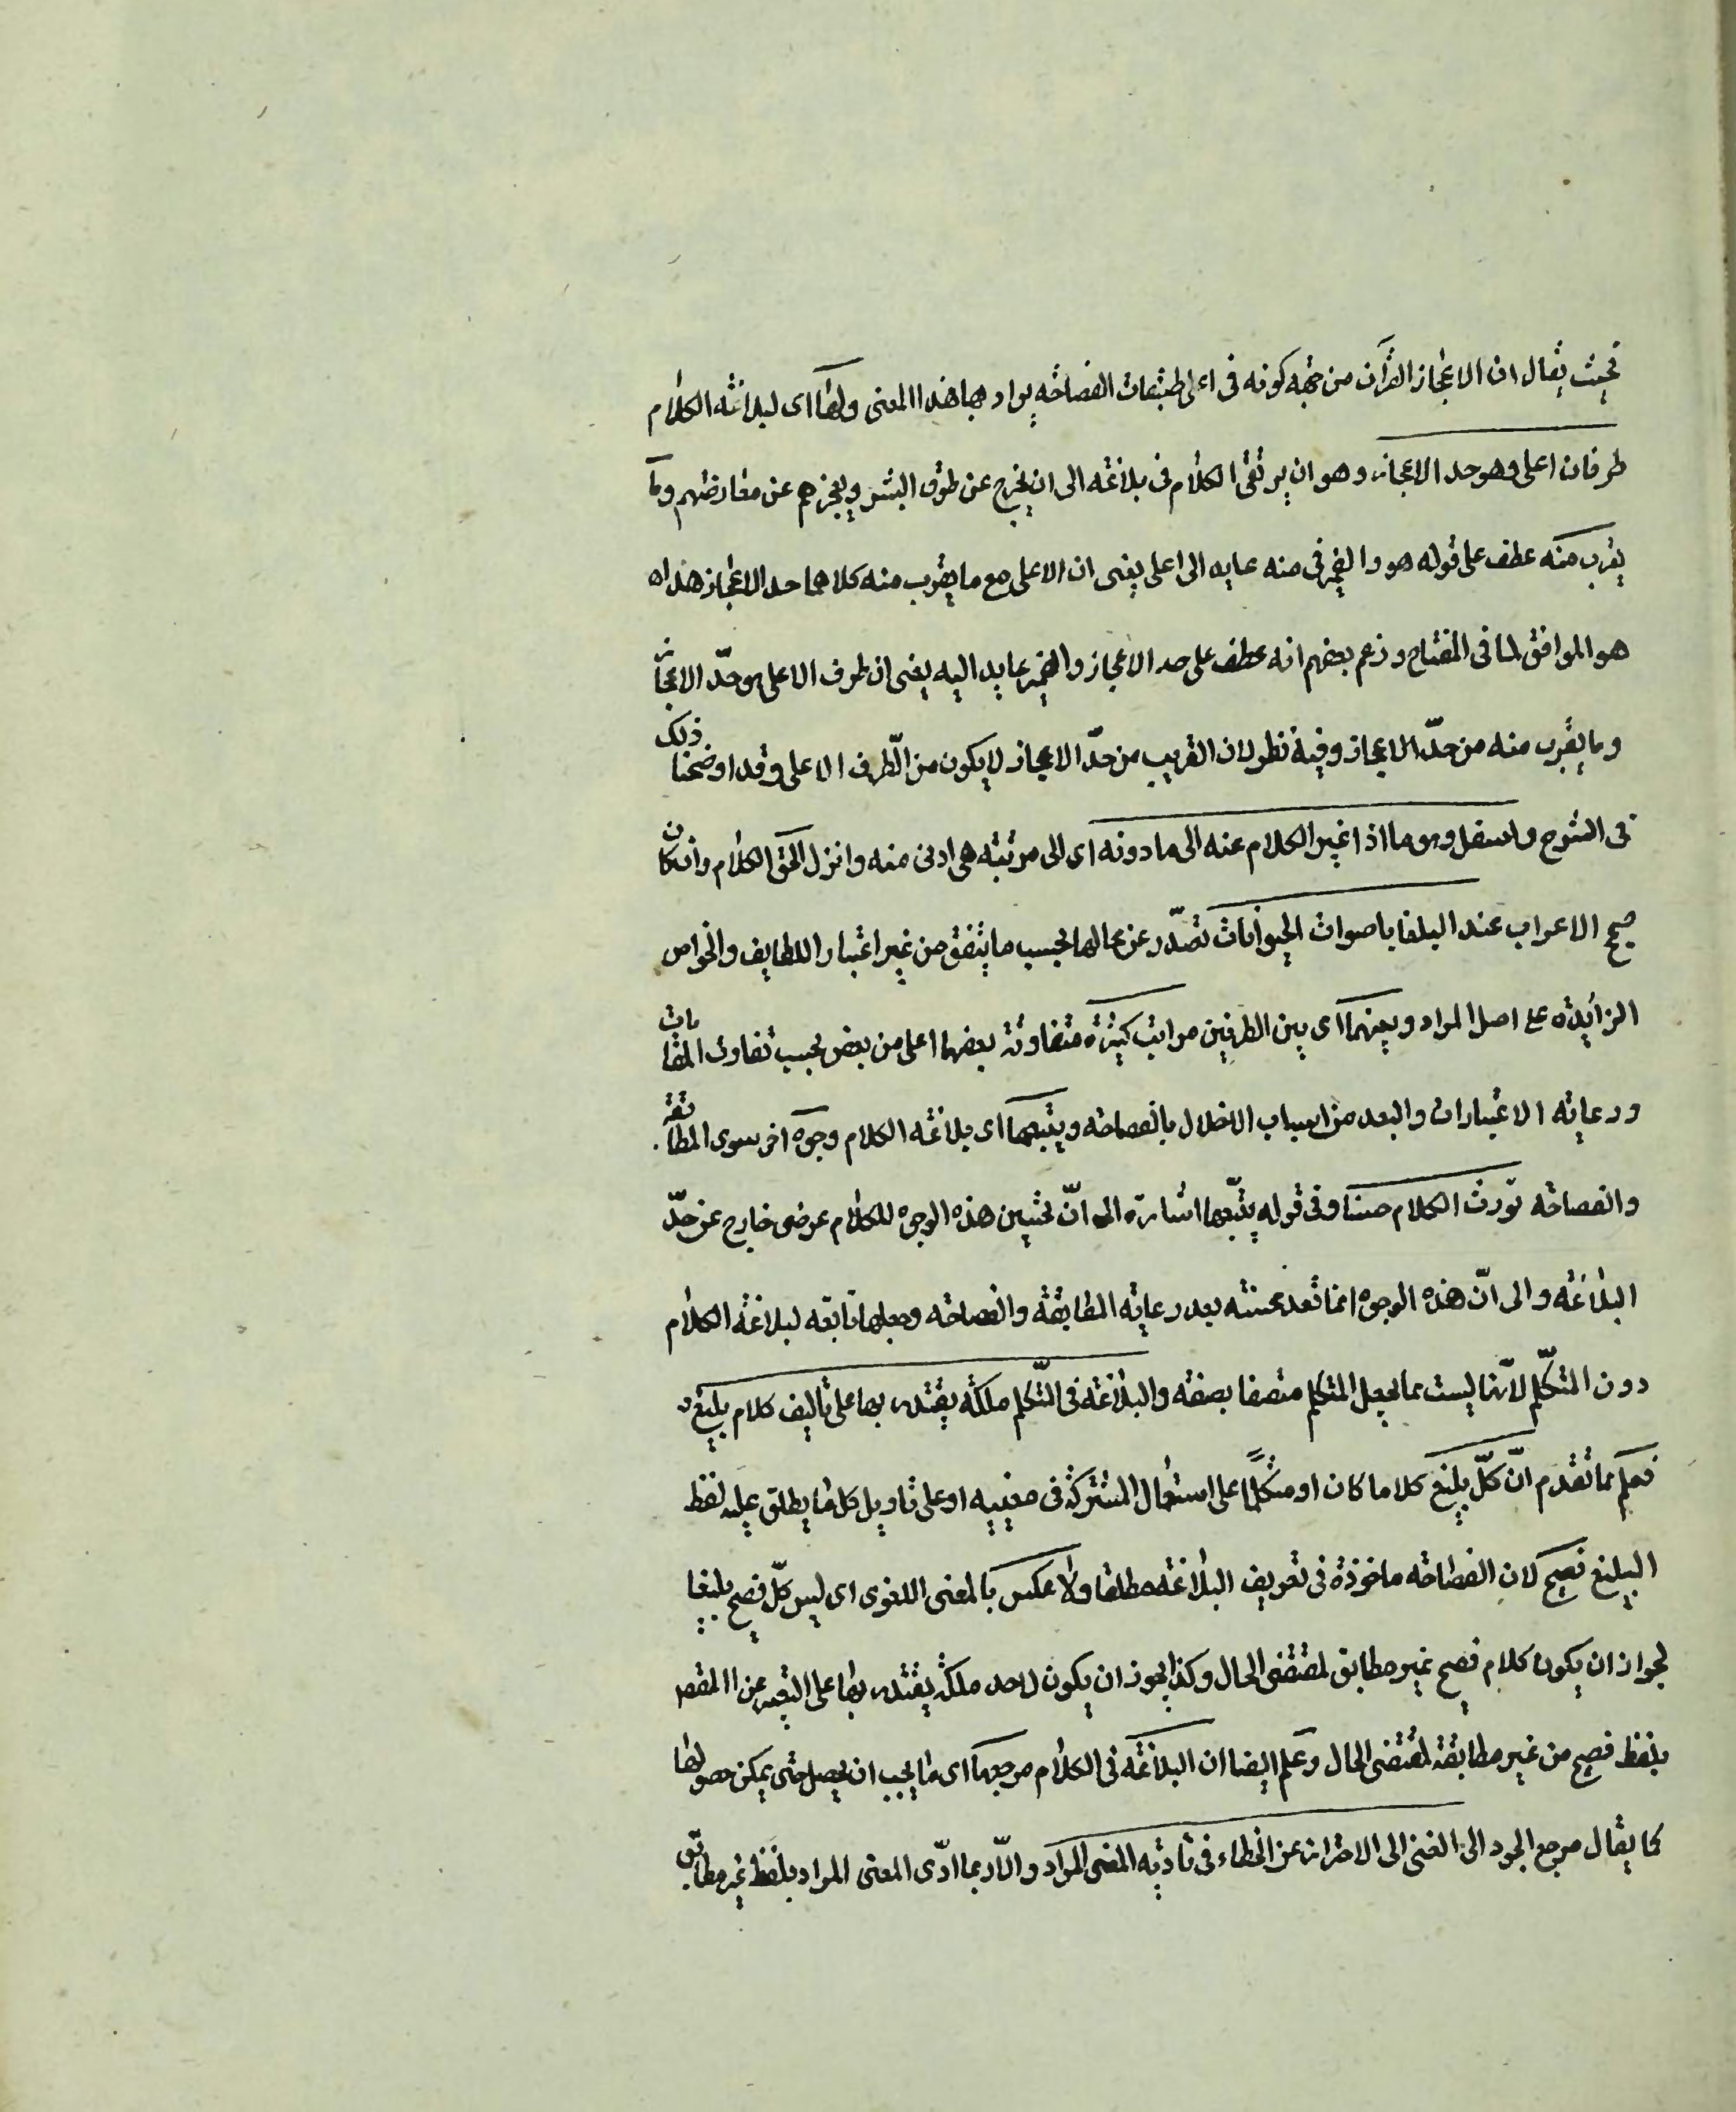 فحيث يقال ان الاعجاز القرآن من جهة كونه فى اعلى طبقات الفصاحه يراد بها هذا المعنى ولها اى لبلاغته الكلام
طرفان اعلى وهو حد الاعجاز وهو ان يرتقى الكلام فى بلاغته الى ان يخرج عن طوق البشر ويعجزهم عن معارضتهم وما
يقرب منه عطف على قوله هو والضمير فى منه عايد الى اعلى يعنى ان الاعلى مع ما يقرب منه كلاهما حد الاعجاز هذا
هو الموافق لما فى المفتاح وزعم بعضهم انه عطف على حد الاعجاز والضمير عايد اليه يعنى ان طرف الاعلى هو حدّ الاعجاز
وما يقرب منه من حدّ الاعجاز وفيه نظر لان القريب من حدّ الاعجاز لا يكون من الطّرف الاعلى وقد اوضحنا ذلك
فى الشرح واسفل وهو ما اذا غير الكلام عنه الى ما دونه اى الى مرتبة هى ادنى منه وانزل التحق الكلام وان كان
صحيح الاعراب عند البلغا باصوات الحيوانات تصدّر عن محالها بحسب ما يتفق من غير اعتبار اللطايف والخواص
الزايدة على اصل المراد وبينهما اى بين الطرفين مراتب كثيرة متفاوته بعضها اعلى من بعض بحسب تفاوت المقامات
ورعايه الاعتبارات والبعد من اسباب الاخلال بالفصاحه ويتبعها اى بلاغته الكلام وجوه اخر سوى المطابقة
والفصاحه تورث الكلام حسنا وفى قوله يتّبعها اشارة الى انّ تحسين هذه الوجوه للكلام عرضى خارج عن حدّ
البلاغه والى انّ هذه الوجوه انما تعد محسنته بعد رعايه المطابقة والفصاحه وجعلها تابعه لبلاغه الكلام
دون المتكلّم لانّها ليست مما يجعل المتكلم متصفا بصفه والبلاغه فى المتكلم ملكه يقتدر بها على تاليف كلام بليغ
فعلم مما تقدم انّ كلّ بليغ كلاما كان او متكلمًا على استعمال المشترك فى معنييه او على تاويل كل ما يطلق عليه لفظ
البليغ فصيح لان الفصاحه ماخوذة فى تعريف البلاغه مطلقا ولا عكس بالمعنى اللغوى اى ليس كلّ فصيح بليغا
لجواز ان يكون كلام فصيح غير مطابق لمقتضى الحال وكذا يجوز ان يكون لاحد ملكه يقتدر بها على التعبير عن المقصـ
بلفظ فصيح من غير مطابقة لمقتضى الحال وعلم ايضا ان البلاغه فى الكلام مرجعها اى ما يجب ان يحصل حتى يمكن حصولها
كما يقال مرجع الجود الى الغنى الى الاحتراز عن الخطاء فى تادية المعنى المراد والّا ربما ادّى المعنى المراد بلفظ غير مطابق